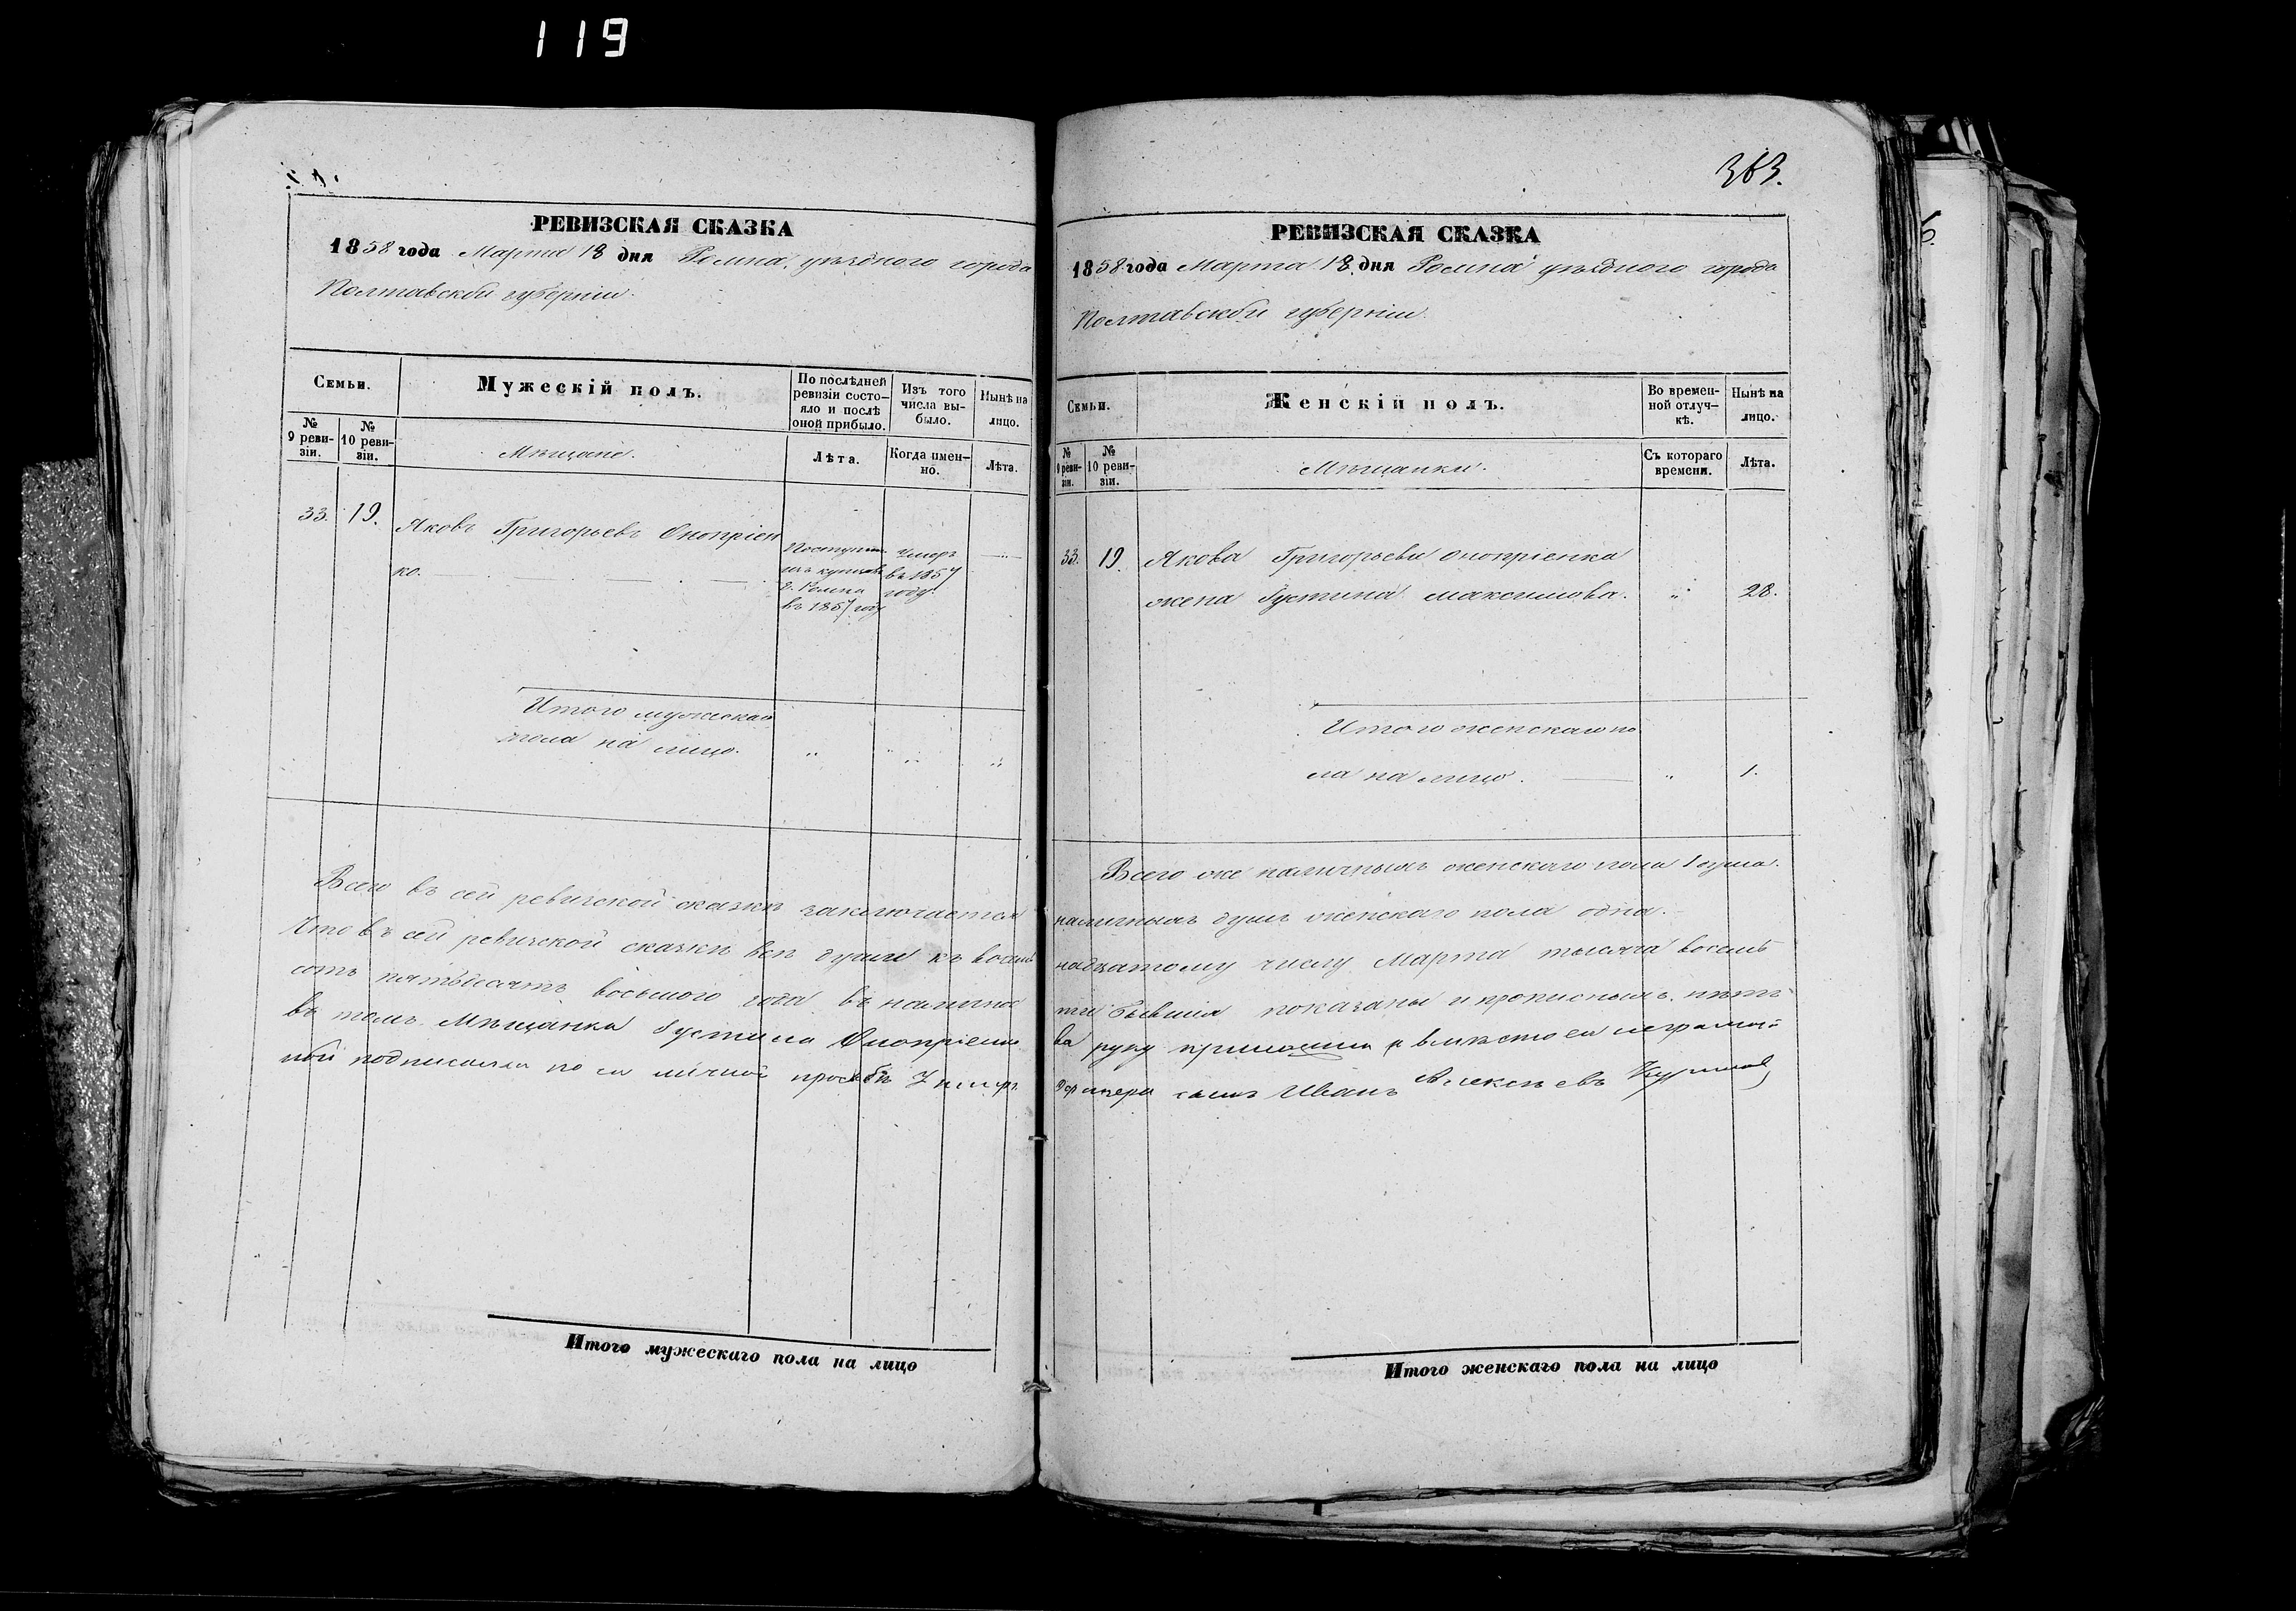 119
РЕВИЗСКАЯ СКАЗКА
1858 года Марта 18 дня Ромна, уѣзднаго города
Полтавской губерніи.
Семьи.
Мужескій полъ.
По послѣдней ревизіи состо-
яло и послѣ
оной прибыло.
Изъ того
числа вы-
было.
Нынѣ на
лицо.
№
9 реви-
зіи.
№
10 реви-
зіи.
Мѣщане.
Лѣта.
Когда имен-
но.
Лѣта.
33. 19. Яковъ Григорьевъ Оноприен
ко.
Поступил
изъ купцовъ
г. Ромна
въ 1857 году
Умеръ
въ 1857
году
Итого мужескаго
пола на лицо. " " "
Всего въ сей ревизской сказкѣ заключается
Что въ сей ревизской сказкѣ всѣ души къ восем
сотъ пятьдесятъ восьмого года въ налично
въ томъ Мѣщанка Густина Оноприенко
ной подписался по ея личной просьбѣ
Итого мужескаго пола на лицо
363.
РЕВИЗСКАЯ СКАЗКА
1858 года Марта 18 дня Ромна уѣзднаго города
Полтавской губерніи.
Семьи.
Женскій полъ.
Во времен-
ной отлуч-
кѣ.
Нынѣ на
лицо.
№
9 реви-
зіи.
№
10 реви-
зіи.
Мѣщанки.
Съ котораго
времени.
Лѣта.
33. 19. Якова Григорьева Оноприенка
жена Густина Максимова. " 28.
Итого женскаго по
ла на лицо. " 1.
Всего же наличныхъ женскаго пола 1 душа.
наличныхъ душъ женскаго пола одна.
надцатому числу Марта тысяча восемь
сти бывшія показаны и прописныхъ нѣтъ
ва руку приложила а вмѣсто ея неграмот
сынъ Иванъ Алексѣевъ
Итого женскаго пола на лицо